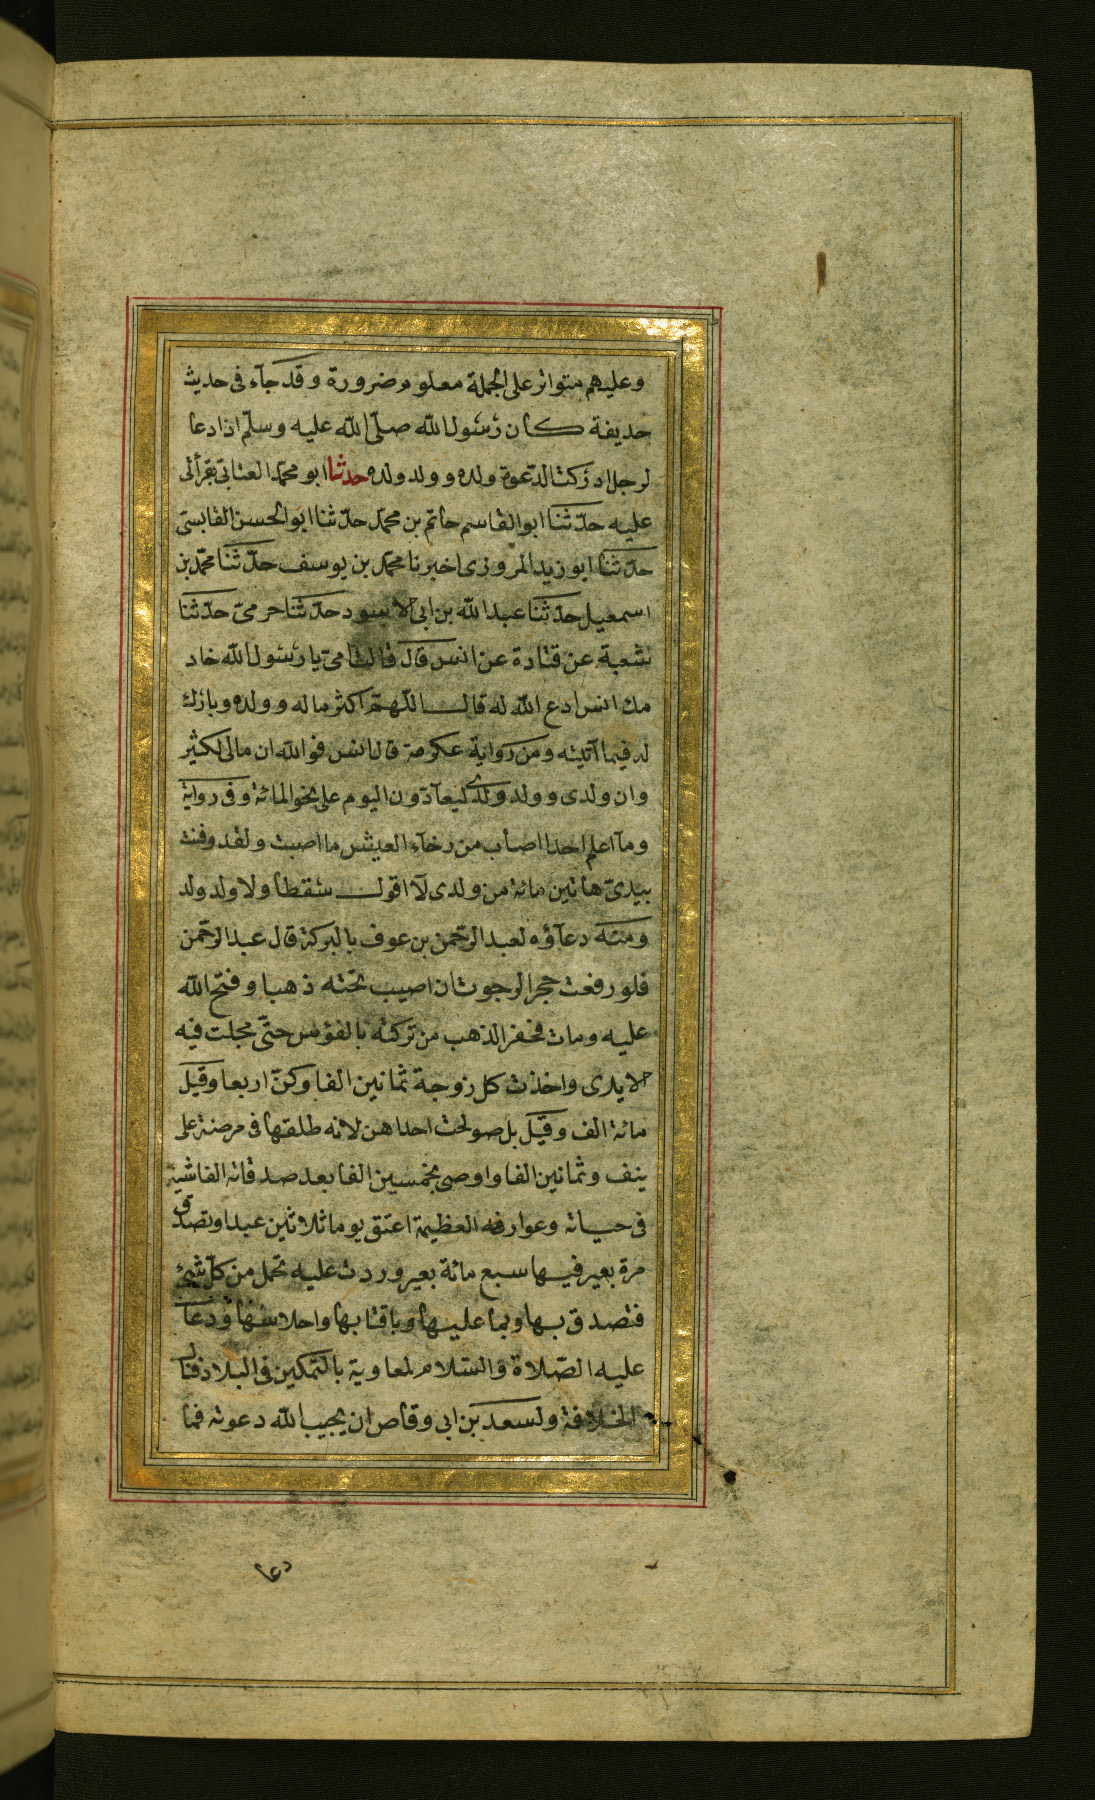 وعليهم متواتر على الجملة معلوم ضرورة وقد جآء فى حديث
حديفة كان رسول الله صلّى الله عليه وسلّم اذا دعا
لرجل ادركت الدّعوة ولده وولد ولده حدثنا ابو محمّد العتابى بقرأتى
عليه حدّثنا ابو القاسم حاتم بن محمّد حدّثنا ابو الحسن القابسىّ
حدّثنا ابو زيد المروزى اخبرنا محمّد بن يوسف حدّثنا محمّد بن
اسمعيل حدّثنا عبد الله بن ابى الاسود حدّثنا حرمىّ حدّثنا
شعبة عن قتادة عن انس قال قالت امىّ يا رسول الله خاد
مك انس ادع الله له قال اللّهمّ اكثر ماله وولده وبارك
له فيما آتيته ومن رواية عكرمة قال انس فوالله ان مالى لكثير
وان ولدى وولد ولدى ليعآدّون اليوم على نحو المائة وفى رواية
ومآ اعلم احدا اصاب من رخآء العيش ما اصبت ولقد دفنت
بيدىّ هاتين مائة من ولدى لآ اقول سقطا ولا ولد ولد
ومنه دعآؤه لعبد الرّحمن بن عوف بالبركة قال عبد الرّحمن
فلو رفعت حجرا لرجوت ان اصيب تحته ذهبا وفتح الله
عليه ومات فحفر الذهب من تركته بالفؤس حتّى مجلت فيه
الايدى واخذت كل زوجة ثمانين الفا وكنّ اربعا وقيل
مائة الف وقيل بل صولحت احداهن لانه طلقها فى مرضه على
ينف وثمانين الفا واوصى بخمسين الفا بعد صدقاته الفاشية
فى حياته وعوارفه العظيمة اعتق يوما ثلاثين عبدا وتصدّق
مرة بعير فيها سبع مائة بعير وردت عليه تحمل من كلّ شىء
فتصدق بها وبما عليها وباقتابها واحلاسها ودعا
عليه الصّلاة والسّلام لمعاوية بالتمكين فى البلاد فنال
الخلافة ولسعد بن ابى وقاص ان يجيب الله دعوته فما
دعا